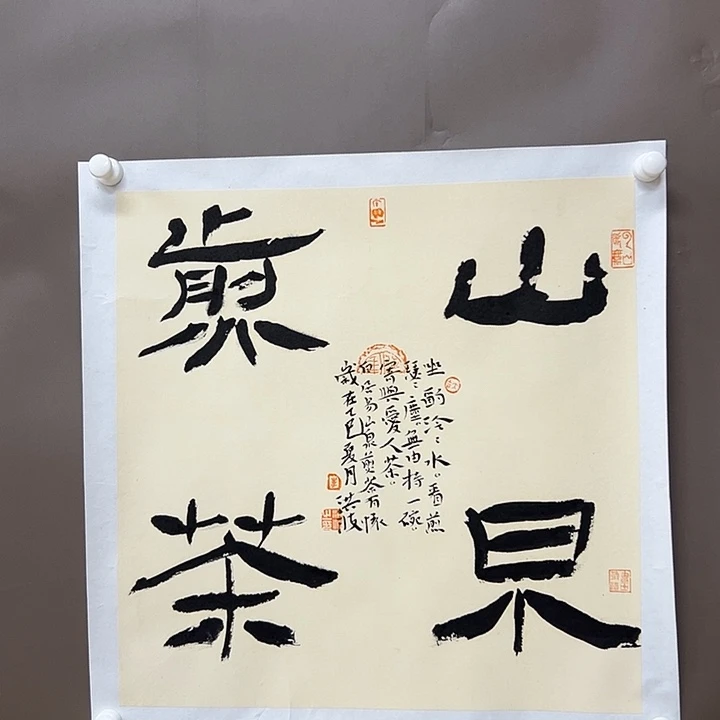 山泉
煎茶
坐酌泠泠水看煎
瑟瑟塵無由持一碗
寄與愛人茶
白居易山泉煎茶有懷
歲在乙巳夏月洪波